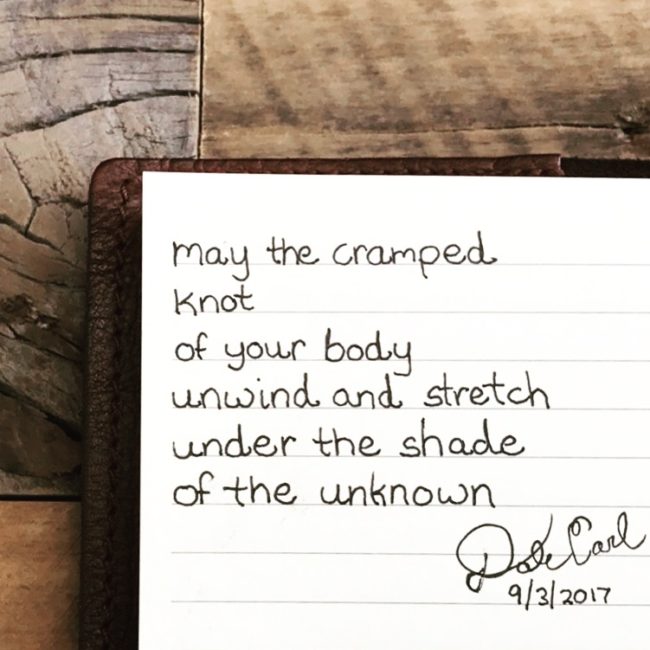 may the cramped
knot
of your body
unwind and stretch
under the shade
of the unknown
Dale Carl
9/3/2017